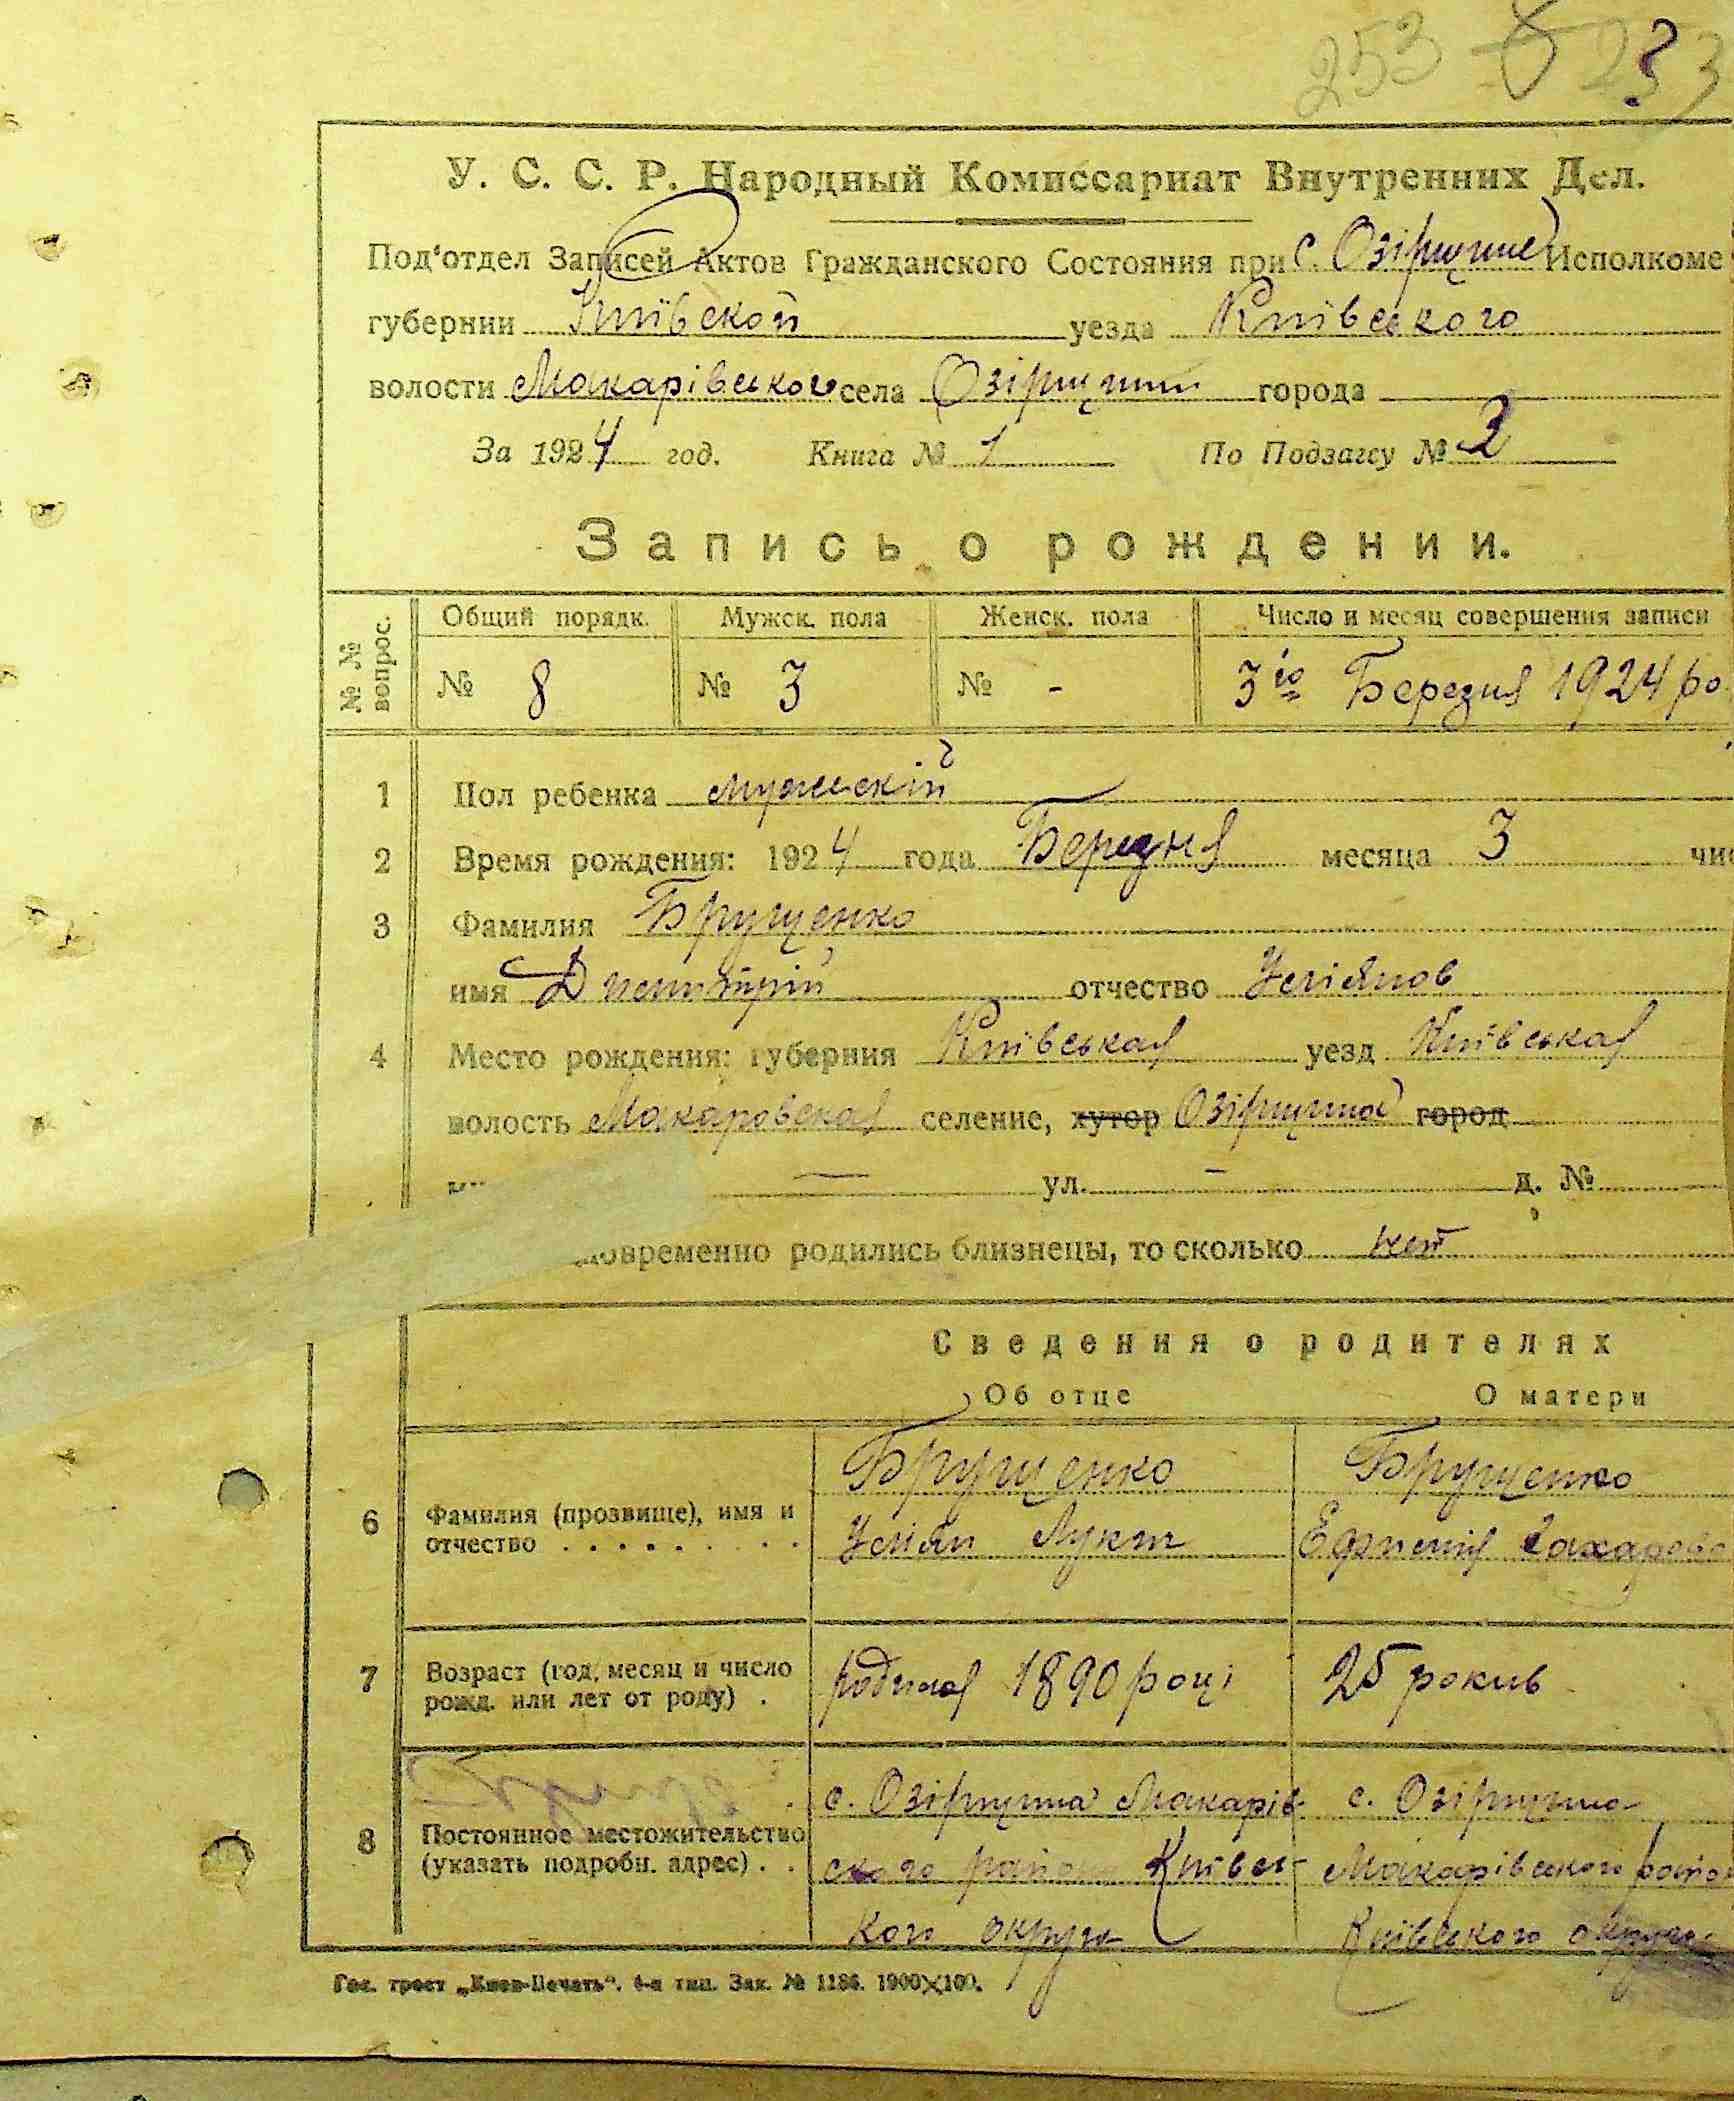 253 233
У. С. С. Р. Народный Комиссариат Внутренних Дел.
Под‘отдел Записей Актов Гражданского Состояния при с. Озірщине Исполкоме
губернии Київской уезда Київського
волости Макарівського села Озірщини города
За 1924 год. Книга № 1 По Подзагсу № 2
Запись о рождении.
№ № вопрос. Общий порядк. Мужск. пола Женск. пола Число и месяц совершения записи
№ 8 № 3 № - 3го Березня 1924 ро
1 Пол ребенка мужескій
2 Время рождения: 1924 года Березня месяца 3 чис
3 Фамилия Брущенко
имя Дмитрій отчество
4 Место рождения: губерния Київська уезд Київська
волость Макаровская селение, хутор Озірщина город
ул. - д. №
довременно родились близнецы, то сколько нет
Сведения о родителях
Об отце О матери
Брущенко Брущенко
6 Фамилия (прозвище), имя и
отчество . . . . . . . . . Лукич Захарова
7 Возраст (год, месяц и число
рожд. или лет от роду) . родился 1890 році 25 рокив
с. Озірщина Макарів- с. Озірщина
8 Постоянное местожительство
(указать подробн. адрес) . . ского района Київсь- Макарівського район
кого округа Київського округа
Гос. трест „Киев-Печать“. 4-я тип. Зак. № 1186. 1900×100.